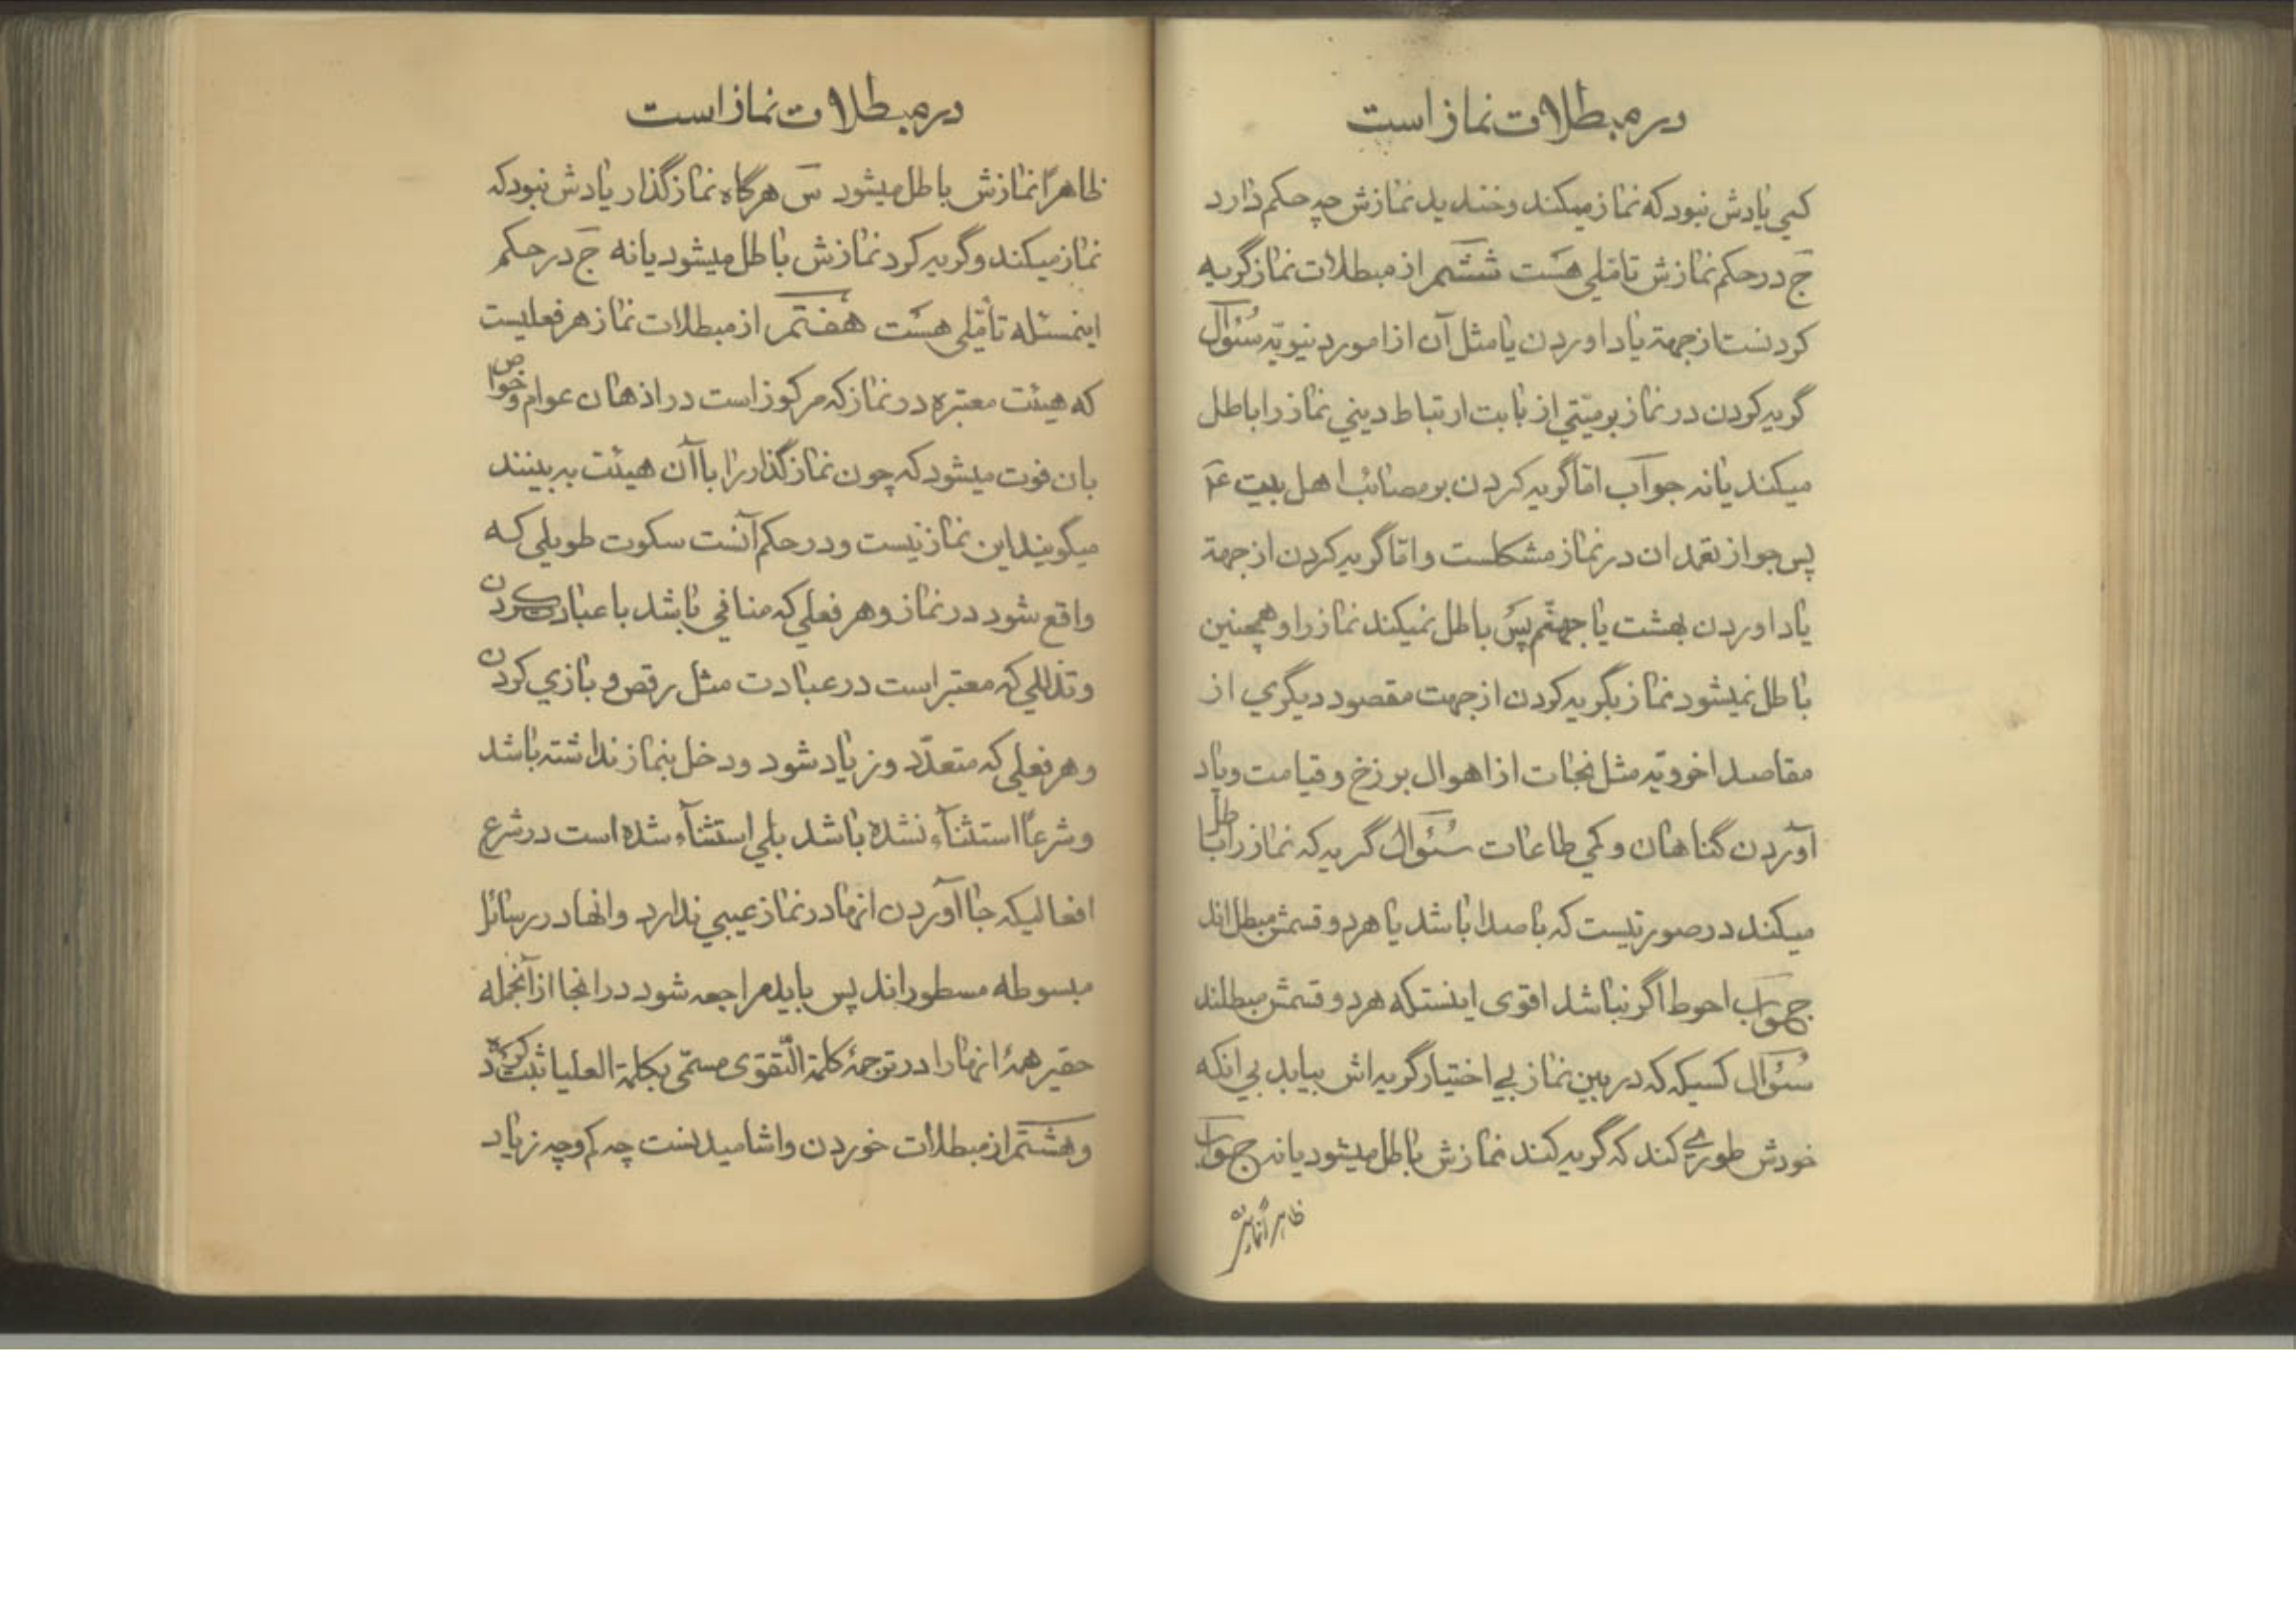 در مبطلات نماز است
کسی یادش نبود که نماز میکند و خندید نمازش چه حکم دارد
ج در حکم نمازش تاملی هست ششم از مبطلات نماز گریه
کردنست از جهة یاد اوردن یا مثل آن از امور دنیویّه سُئوال
گریه کردن در نماز بر میّتی از بابت ارتباط دینی نماز را باطل
میکند یا نه جواب امّا گریه کردن بر مصائب اهل بیت عَ
پس جواز تعمد ان در نماز مشکلست و امّا گریه کردن از جهة
یاد اوردن بهشت یا جهنّم پس باطل نمیکند نماز را و همچنین
باطل نمیشود نماز بگریه کردن از جهت مقصود دیگری از
مقاصد اخرویّه مثل نجات از اهوال برزخ و قیامت و یاد
آوردن گناهان و کمی طاعات سُئوال گریه که نماز را باطل
میکند در صورتیست که با صدا باشد یا هر دو قسمش مبطل اند
جواب احوط اگر نباشد اقوی اینستکه هر دو قسمش مبطلند
سُئوال کسیکه که در بین نماز بی اختیار گریه اش بیاید بی انکه
خودش طوری کند که گریه کند نمازش باطل میشود یا نه جواب
ظاهراً نمازش
در مبطلات نماز است
ظاهراً نمازش باطل میشود سَ هرگاه نماز گذار یادش نبود که
نماز میکند و گریه کرد نمازش باطل میشود یا نه جَ در حکم
اینمسئله تأمّلی هست هفتم از مبطلات نماز هر فعلیست
که هیئت معتبره در نماز که مرکوز است در اذهان عوام و خواص
بان فوت میشود که چون نماز گذار را باآن هیئت به بینند
میگویند این نماز نیست و در حکم آنست سکوت طویلی که
واقع شود در نماز و هر فعلی که منافی باشد با عبادت کردن
و تذللی که معتبر است در عبادت مثل رقص و بازی کردن
و هر فعلی که متعدّد و زیاد شود و دخل بنماز نداشته باشد
و شرعاً استثنآء نشده باشد بلی استثنآء شده است در شرع
افعالیکه جا آوردن انها در نماز عیبی ندارد و انها در رسائل
مبسوطه مسطوراند پس باید مراجعه شود در انجا از آنجمله
حقیر همهٔ انها را در ترجمهٔ کلمة التّقوی مسمّی بکلمة العلیا ثبت کرده‌ام
و هشتم از مبطلات خوردن و اشامیدنست چه کم و چه زیاد